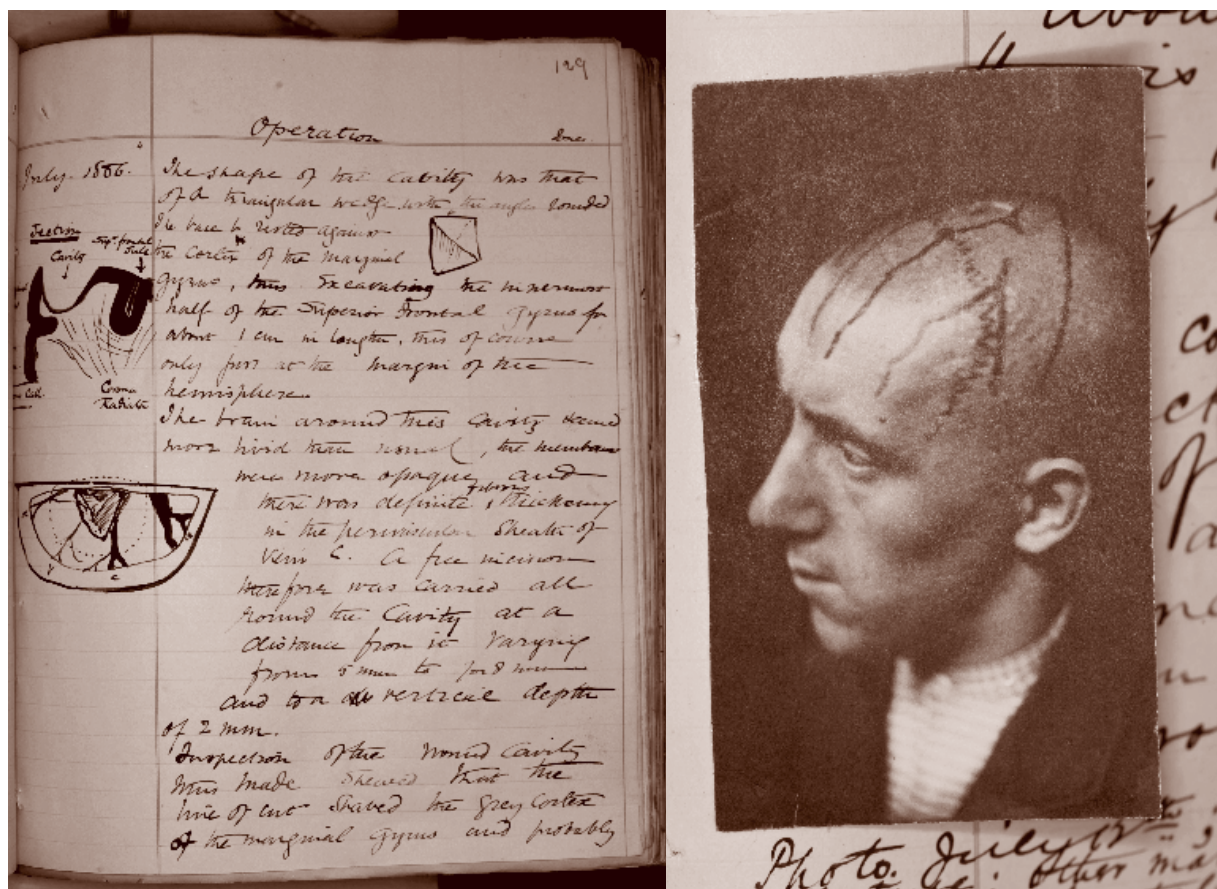 129
Operation
July. 1886.
The shape of the cavity was that
of a triangular wedge with the angles rounded
The base b rested against
the cortex of the marginal
gyrus, thus excavating the innermost
half of the Superior Frontal gyrus for
about 1 cm in length, this of course
only just at the margin of the
hemisphere.
The brain around this cavity seemed
more livid than normal, the membranes
were more opaque and
there was definite fibrous thickening
in the perivascular sheath of
vein C. A free incision
therefore was carried all
round the cavity at a
distance from it varying
from 5 mm to
and to a vertical depth
of 2 mm.
Inspection of the wound cavity
thus made shewed that the
line of cut shaved the grey cortex
of the marginal gyrus and probably
Section
Cavity
Supr frontal
Sulc
Corona
Radiata
Call.
c
is
Photo. July 12th
other